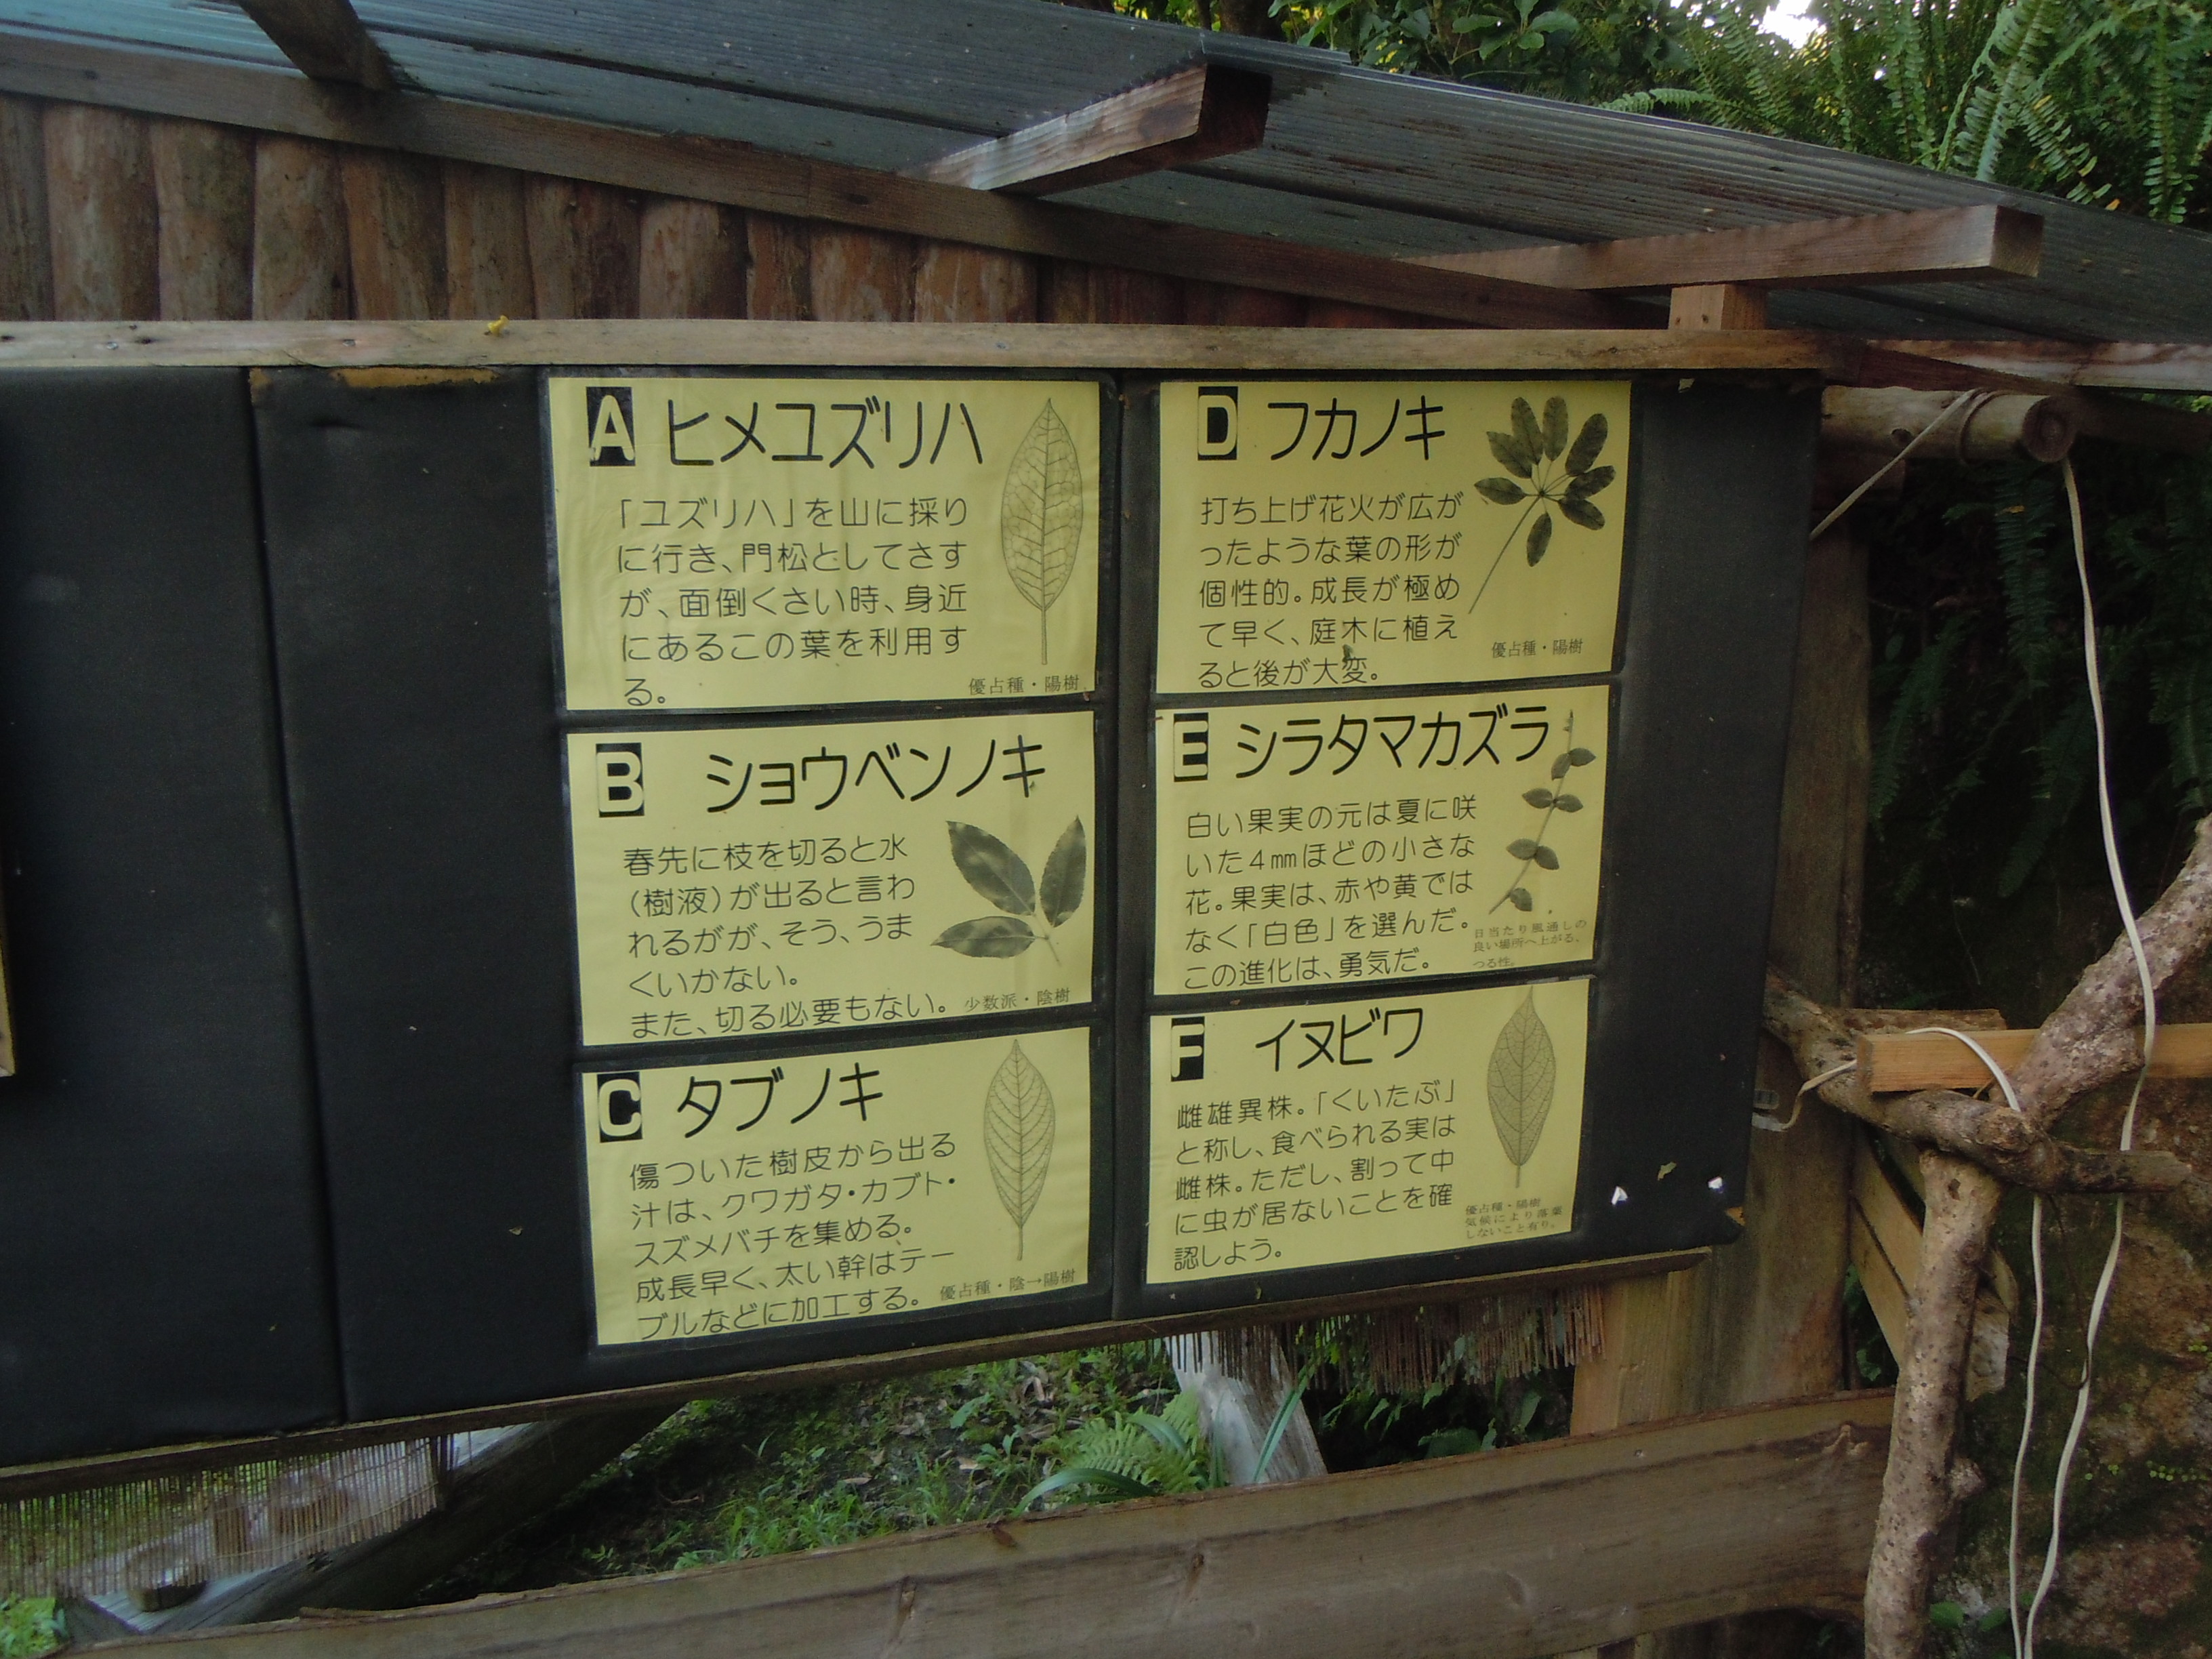 A ヒメユズリハ
「ユズリハ」を山に採り
に行き、門松としてさす
が、面倒くさい時、身近
にあるこの葉を利用す
る。
優占種・陽樹
B ショウベンノキ
春先に枝を切ると水
(樹液)が出ると言わ
れるがが、そう、うま
くいかない。
また、切る必要もない。
少数派・陰樹
C タブノキ
傷ついた樹皮から出る
汁は、クワガタ・カブト・
スズメバチを集める。
成長早く、太い幹はテー
ブルなどに加工する。
優占種・陰→陽樹
D フカノキ
打ち上げ花火が広が
ったような葉の形が
個性的。成長が極め
て早く、庭木に植え
ると後が大変。
優占種・陽樹
E シラタマカズラ
白い果実の元は夏に咲
いた4㎜ほどの小さな
花。果実は、赤や黄では
なく「白色」を選んだ。
この進化は、勇気だ。
日当たり風通しの
良い場所へ上がる、
つる性。
F イヌビワ
雌雄異株。「くいたぶ」
と称し、食べられる実は
雌株。ただし、割って中
に虫が居ないことを確
認しよう。
優占種・陽樹
気候により落葉
しないこと有り。